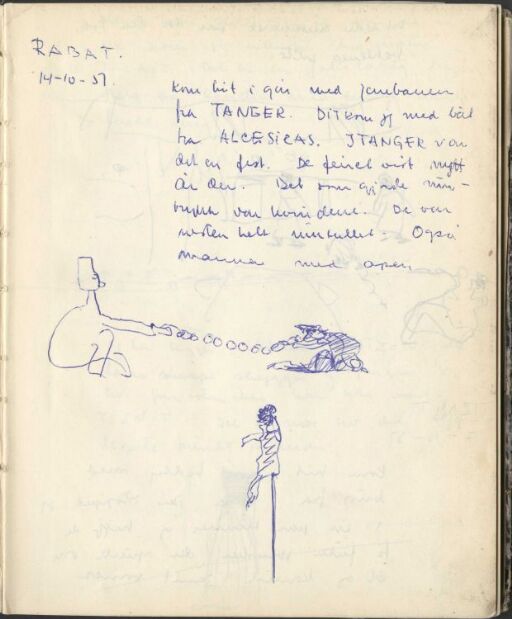 RABAT.
14-10-51
kom hit i går med jernbanen
fra TANGER. Dit kom jeg med båt
fra ALGESIRAS. I TANGER var
det en fest. De feiret visst nytt
år der. Det som gjorde inn-
trykk var kvindene. De var
nesten helt innhullet. Også
manna med apen